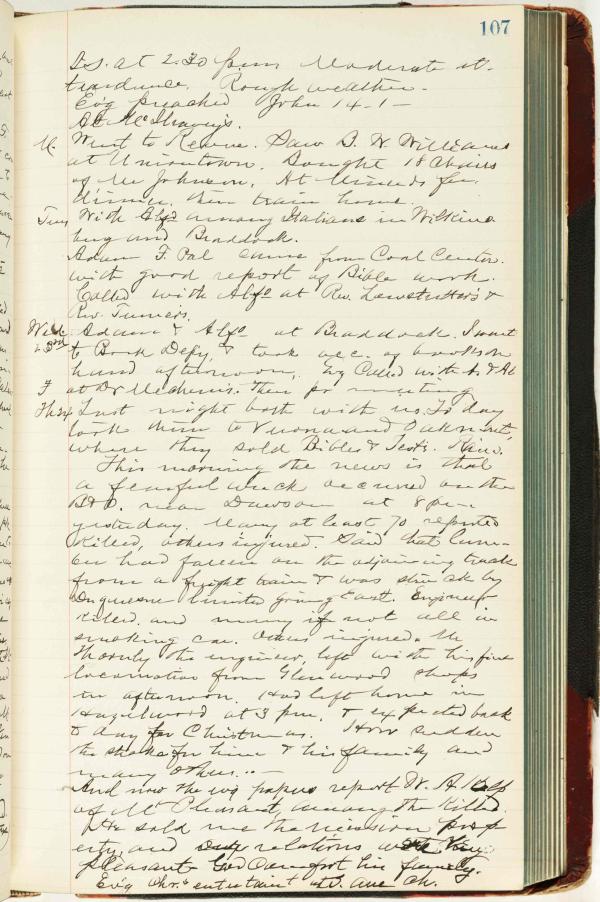 107
S.S. at 2.30 p.m. Moderate at-
tendance. Rough weather.
Ev'g preached John 14-1-
At McIlravy's.
M. Went to Revere. Saw B. W. Williams
at Uniontown. Bought 18 Chairs
of Mr Johnson. At Minerds for
dinner, then train home.
Tues With Alfo among Italians in Wilkins
burg and Braddock.
Adam F. Pal came from Coal Center
with good report of Bible work.
Called with Alfo at Rev. &
Rev. Turners.
Wed. Adam & Alfo at Braddock. I went
23rd to Book Depy, & took acc. of books on
hand afternoon, Ev'g Called with A & Al
at Dr Then pr meeting
Th 24 Last night both with us. To day
took them to Verona and Oakmont,
where they sold Bibles & Tests.
This morning the news is that
a fearful wreck occurred on the
B&O. near Dawson at 8 pm
yesterday. Many at least 70 reported
killed, others injured. Said that lum-
ber had fallen on the adjoining track
from a freight train & was struck by
Duquesne limited going East. Engineer
killed. and many if not all in
smoking car. Others injured. Mr
Thornly the engineer, left with his fine
locomotive from Glenwood shops
in afternoon. Had left home in
Hazelwood at 3 pm. & expected back
to day for Christmas. How sudden
the stroke for him & his family and
many others..—
And now the ev'g papers report W. A.
of Mt Pleasant, among the killed.
He sold me the mission prop
erty, and our relations were
pleasant. God comfort his family.
Ev'g Chr's entertain't at S. Ave Ch.